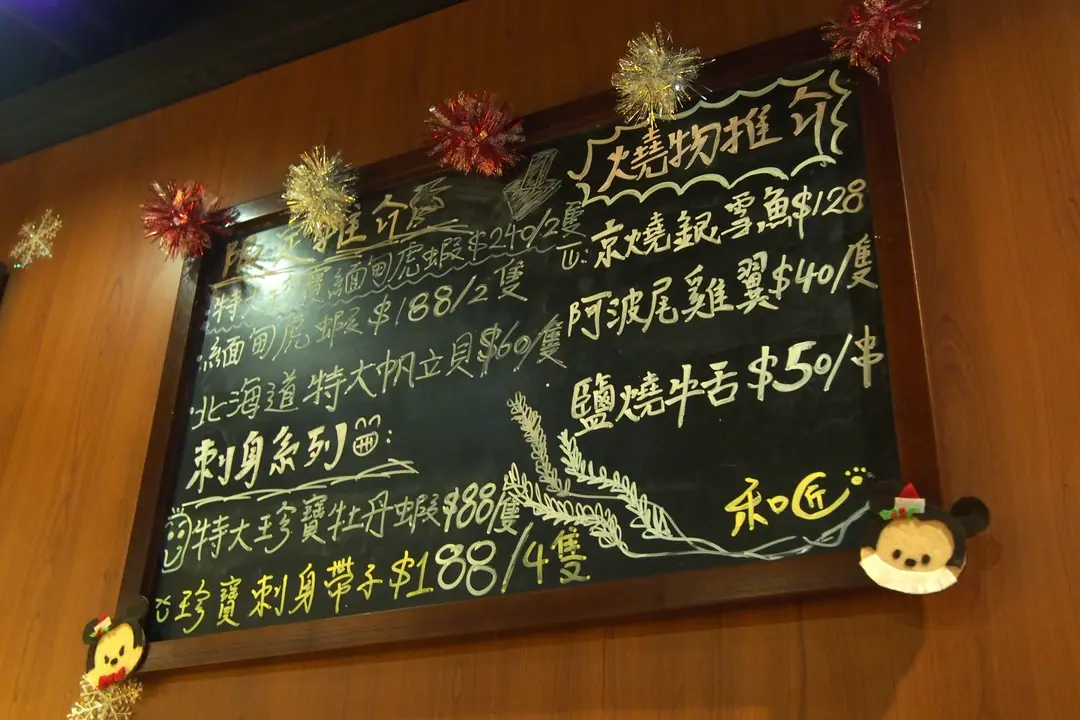 限定推介
特大珍寶緬甸虎蝦$240/2隻
緬甸虎蝦$188/2隻
北海道特大帆立貝$60/隻
刺身系列:
特大珍寶牡丹蝦$88/隻
珍寶刺身帶子$188/4隻
燒物推介
京燒銀雪魚$128
阿波尾雞翼$40/隻
鹽燒牛舌$50/串
和匠